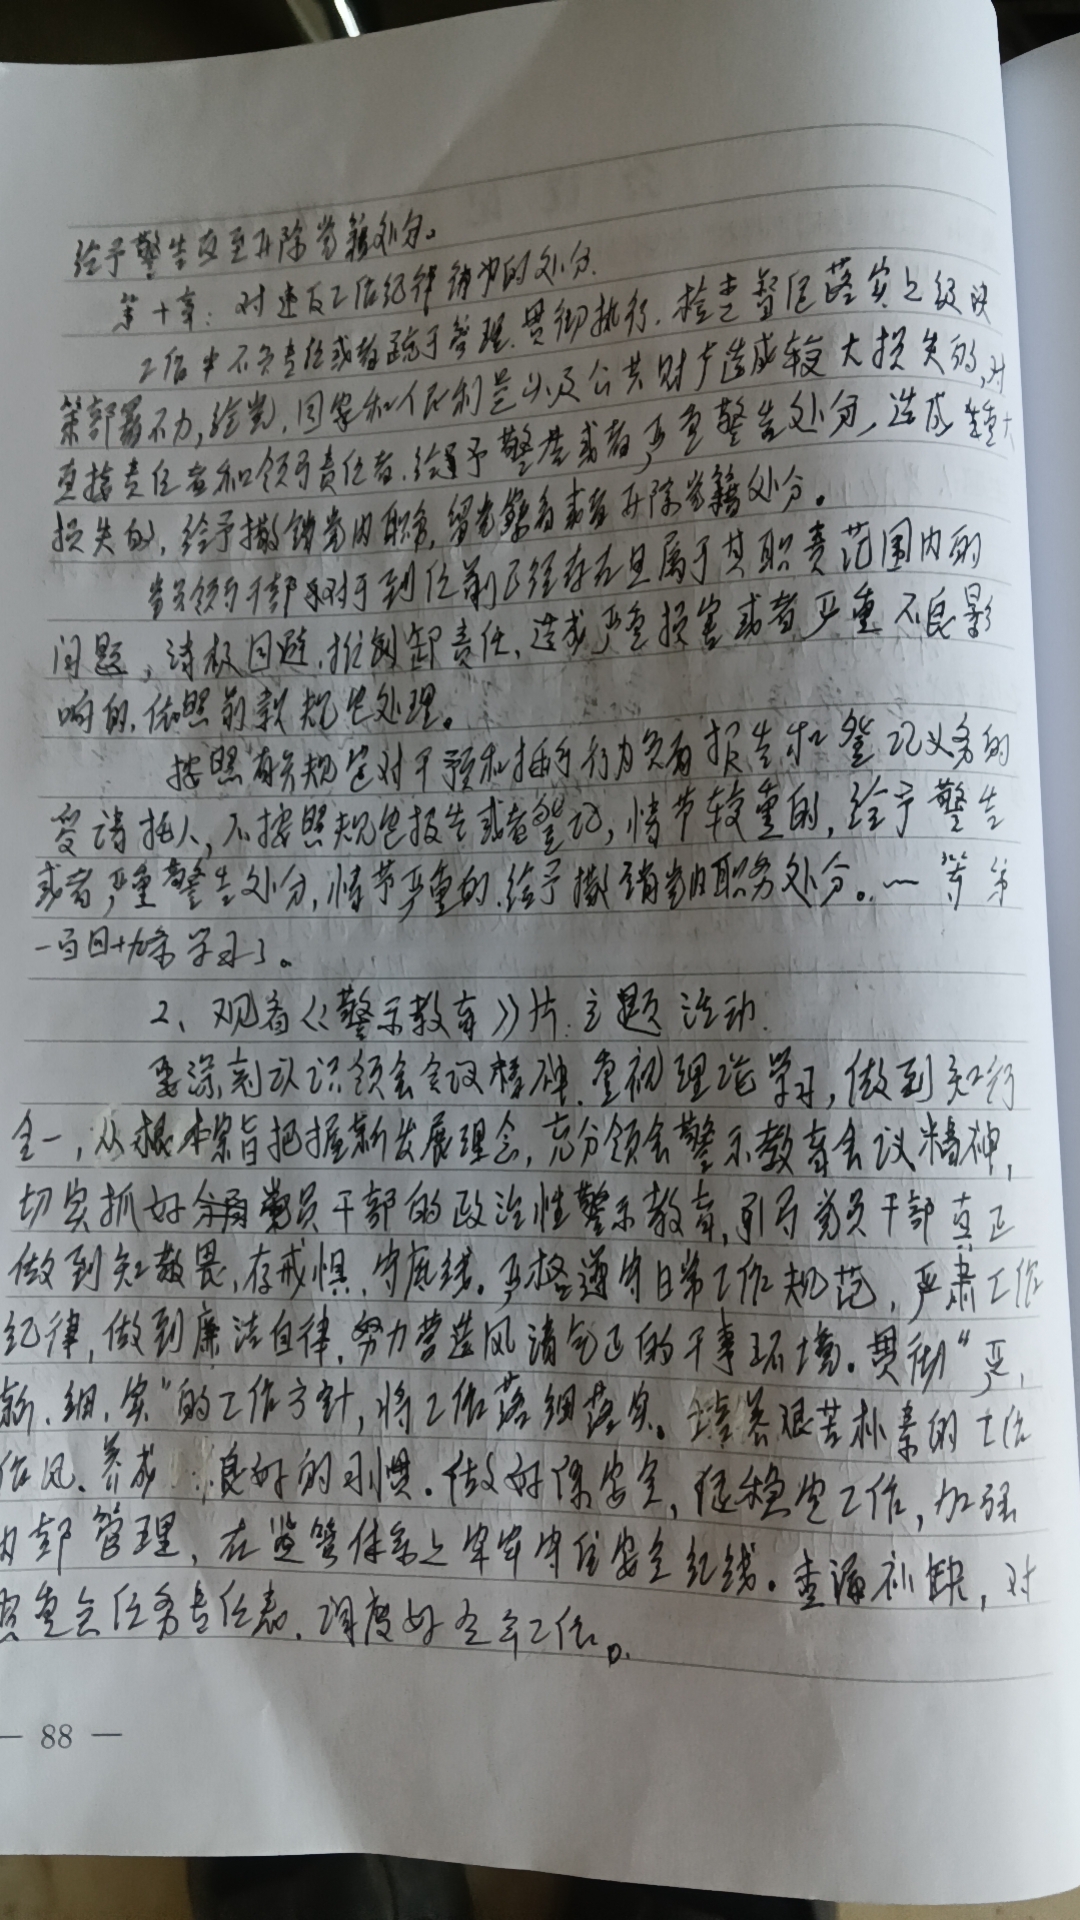 给予警告直至开除党籍处分。
第十章:对违反工作纪律行为的处分.
工作中不负责任或者疏于管理.贯彻执行.检查督促落实上级决
策部署不力,给党,国家和人民利益以及公共财产造成较大损失的,对
直接责任者和领导责任者.给予警告或者严重警告处分,造成重大
损失的,给予撤销党内职务,留党察看或者开除党籍处分。
党员领导干部对于到任前已经存在且属于其职责范围内的
问题,消极回避.推卸责任、造成严重损害或者严重不良影
响的.依照前款规定处理。
按照有关规定对干预和插手行为负有报告和登记义务的
受请托人,不按照规定报告或者登记,情节较重的,给予警告
或者严重警告处分,情节严重的.给予撤销党内职务处分。〜等 第
一百四十九条学习了。
2、观看《警示教育》片.主题活动.
要深刻认识领会会议精神.重视理论学习,做到知行
合一,从根本宗旨把握新发展理念,充分领会警示教育会议精神,
切实抓好党员干部的政治性警示教育,引导党员干部真正
做到知敬畏,存戒惧.守底线。严格遵守日常工作规范,严肃工作
纪律,做到廉洁自律.努力营造风清气正的干事环境。贯彻"严,
新.细.实"的工作方针,将工作落细落实。培养艰苦朴素的工作
作风.养成良好的习惯.做好保安全,促稳定工作,加强
内部管理,在监管体系上牢牢守住安全红线。查漏补缺,对
照重点任务责任表.调度好工作。